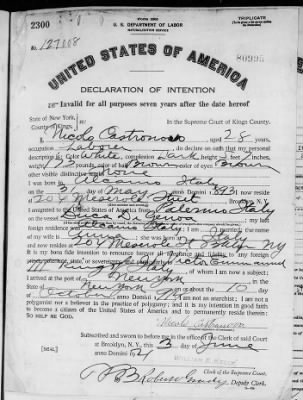 2300
FORM 2202
TRIPLICATE
U. S. DEPARTMENT OF LABOR
NATURALIZATION SERVICE
No. 127118
80995
UNITED STATES OF AMERICA
DECLARATION OF INTENTION
Invalid for all purposes seven years after the date hereof
State of New York,
County of Kings,
In the Supreme Court of Kings County.
I, Nicola aged 28 years,
occupation Laborer, do declare on oath that my personal
description is: Color White, complexion Dark, height 5 feet 7 inches,
weight pounds, color of hair Brown, color of eyes Brown
other visible distinctive marks none
I was born in Italy
on the day of May, anno Domini 1893; I now reside
at 204 Meserole Street, Brooklyn, N.Y.
I emigrated to the United States of America from Palermo Italy
on the vessel Duca; my last
foreign residence was Italy; I am married; the name
of my wife is; she was born
and now resides at 204 Meserole St Bklyn NY
It is my bona fide intention to renounce forever all allegiance and fidelity to any foreign
Victor Emmanuel
III King of Italy, of whom I am now a subject;
I arrived at the port of New York, in the
State of New York, on or about the 10 day
of October, anno Domini; I am not an anarchist; I am not a
polygamist nor a believer in the practice of polygamy; and it is my intention in good faith
to become a citizen of the United States of America and to permanently reside therein:
SO HELP ME GOD.
Subscribed and sworn to before me in the office of the Clerk of said Court
at Brooklyn, N.Y., this 3 day of June
anno Domini 1921
[SEAL]
WILLIAM E. KELLY
Clerk of the Supreme Court.
By, Deputy Clerk.